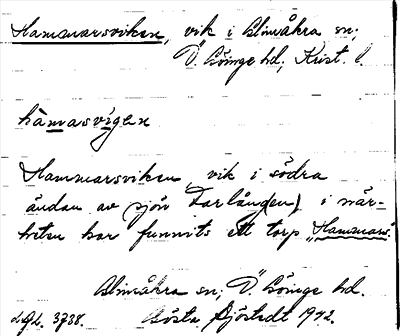 Hammarsviken, vik i Glimåkra sn;
Ö. Göinge hd; Krist. l.
håmasvigen
Hammarsviken vik i södra
ändan av sjön Farlång(en) i när-
heten har funnits ett torp "Hammars".
Glimåkra sn, Ö. Göinge hd.
3738. Gösta Sjöstedt 1942.